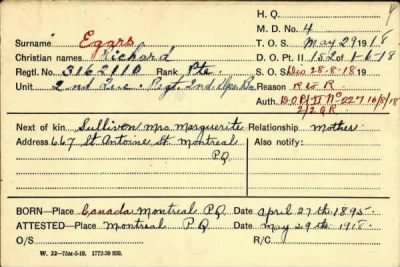 H. Q.
M. D. No. 4
Surname Eggrs T. O. S. May 29 1918
Christian names Richard D. O. Pt. II 152 of 1-6-18
Regtl. No. 3162110 Rank Pte. S. O. S. Dis 28-8-18 19
Unit 2nd Que. Regt. 2nd Reason
Auth. D.O. Pt II No 227 16/8/18
2/2 QR
Next of kin Sullivon Mrs. Marguerite Relationship Mother
Address 667 St. Antoine St. Montreal Also notify:
P.Q.
BORN—Place Canada Montreal P.Q. Date April 27th 1895.
ATTESTED—Place Montreal P.Q Date May 29th 1918.
O/S R/C
W. 22—75M-5-18. 1772-39-839.